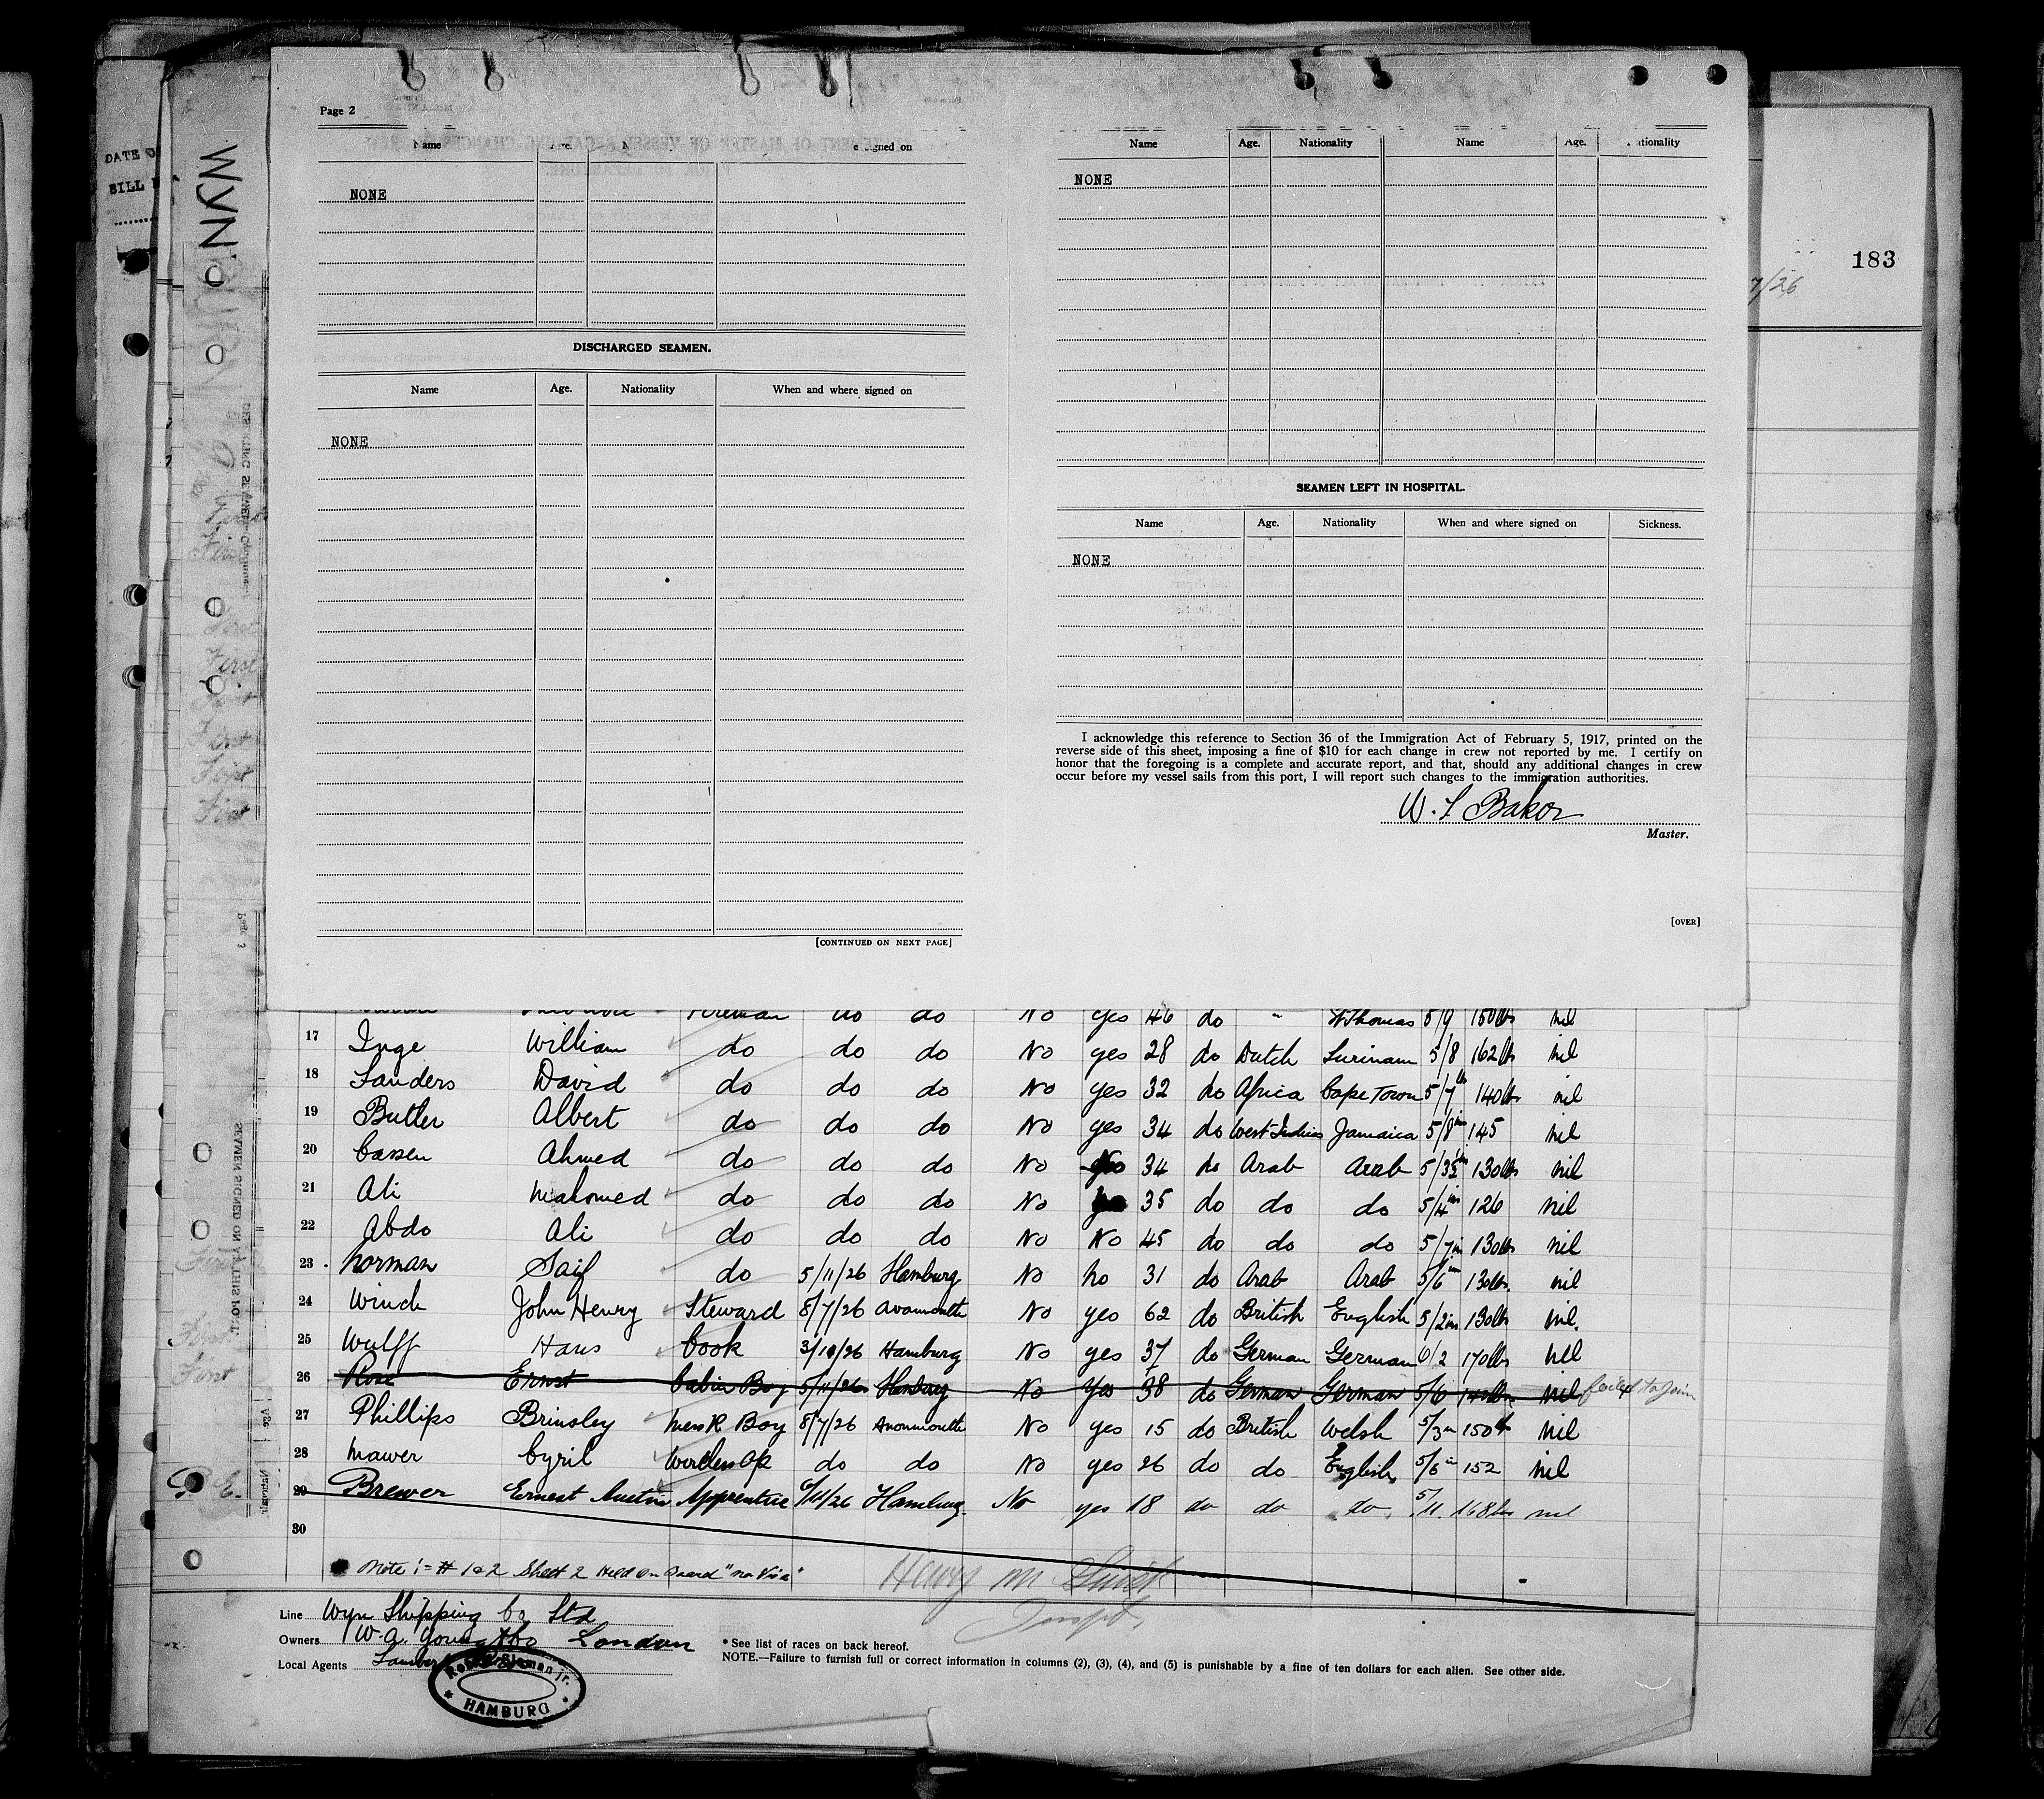 DATE O
BILL
WYN
183
7/26
Page 2
Name Age. e signed on
NONE
DISCHARGED SEAMEN.
Name Age. Nationality When and where signed on
NONE
[CONTINUED ON NEXT PAGE]
Name Age. Nationality Name Age. ationality
NONE
SEAMEN LEFT IN HOSPITAL.
Name Age. Nationality When and where signed on Sickness.
NONE
I acknowledge this reference to Section 36 of the Immigration Act of February 5, 1917, printed on the
reverse side of this sheet, imposing a fine of $10 for each change in crew not reported by me. I certify on
honor that the foregoing is a complete and accurate report, and that, should any additional changes in crew
occur before my vessel sails from this port, I will report such changes to the immigration authorities.
W. L Baker
Master.
[OVER]
Fireman do do No yes 46 do " St Thomas 5/9 150lbs nil
17 Inge William do do do No yes 28 do Dutch Surinam 5/8 162lb nil
18 Sanders David do do do No yes 32 do Africa Cape Town 5/7 140lbs nil
19 Butler Albert do do do No yes 34 do West Indies Jamaica 5/8in 145 nil
20 Cassen Ahmed do do do No No 34 do Arab Arab 5/3½in 130lbs nil
21 Ali Mahomed do do do No 35 do do do 5/4in 126 nil
22 Abdo Ali do do do No No 45 do do do 5/7in 130lbs nil
23 Norman Saif do 5/11/26 Hamburg No No 31 do Arab Arab 5/6in 130lbs nil
24 Winch John Henry Steward 8/7/26 Avonmouth No yes 62 do British English 5/2ins 130lbs nil.
25 Wulff Hans Cook 3/10/26 Hamburg No yes 37 do German German 6/2 170lbs nil
26 Rose Ernst Cabin Boy 5/11/26 Hamburg No Yes 38 do German German 5/6 140lbs nil failed to join
27 Phillips Brinsley Mess R Boy 8/7/26 Avonmouth No yes 15 do British Welsh 5/3in 150lb nil
28 Mawer Cyril Wireless Op do do No yes 26 do do English 5/6in 152 nil
29 Brewer Ernest Austin Apprentice 6/11/26 Hamburg No yes 18 do do do 5/11. 168lbs nil
30
Note :- # 1 & 2 Sheet 2 Held on Board "no Visa"
Henry M
Line Wyn Shipping Co Ltd
Owners W. A. Young & Co London
Local Agents Lambert
Rob. M. Sloman jr.
* HAMBURG *
* See list of races on back hereof.
NOTE.—Failure to furnish full or correct information in columns (2), (3), (4), and (5) is punishable by a fine of ten dollars for each alien. See other side.